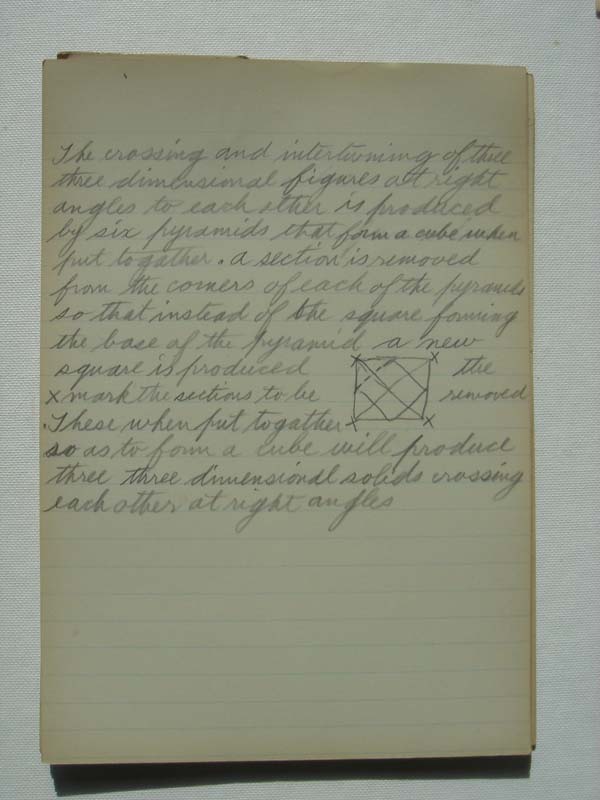 The crossing and intertwining of three
three dimensional figures at right
angles to each other is produced
by six pyramids that form a cube when
put togather. a section is removed
from the corners of each of the pyramids
so that instead of the square forming
the base of the pyramid a new
square is produced the
x mark the sections to be removed
These when put togather
so as to form a cube will produce
three three dimensional solids crossing
each other at right angles